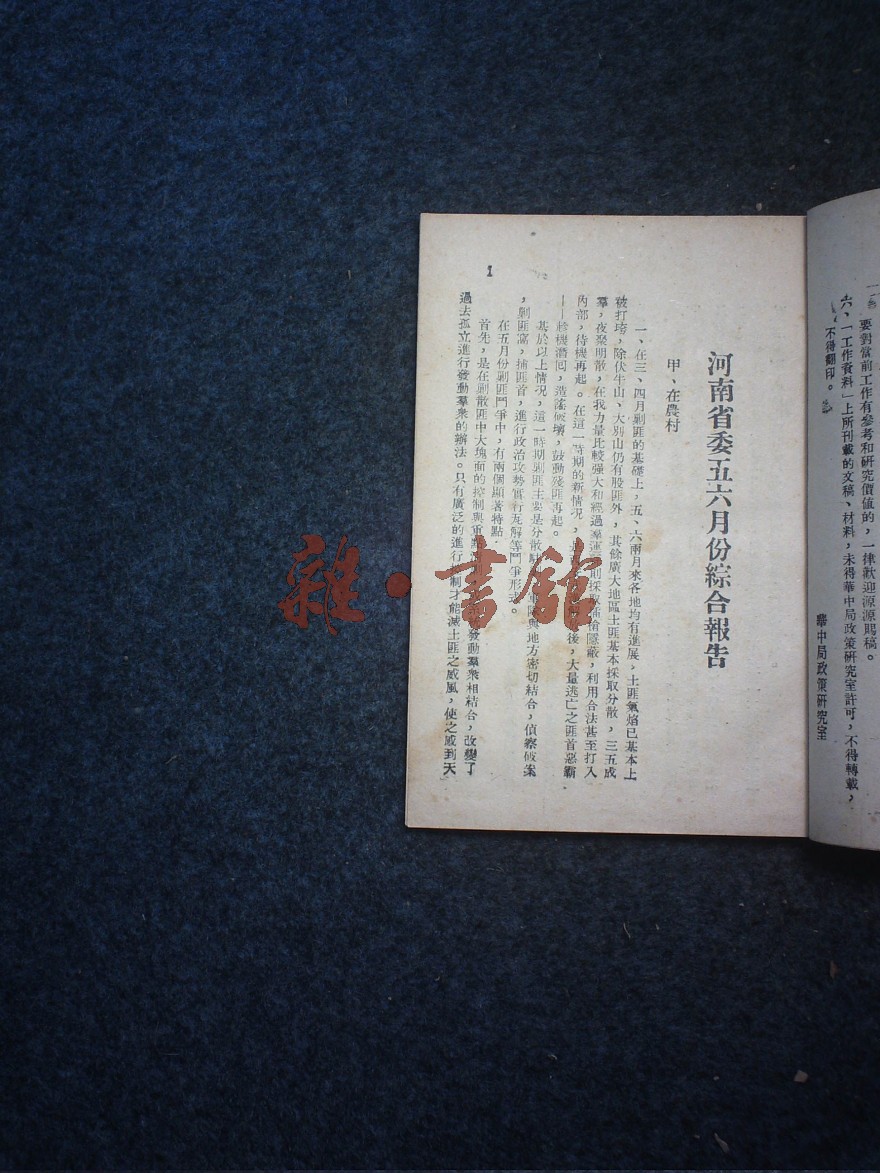 要對當前工作有參考和研究價值的,一律歡迎源源賜稿。
六、「工作資料」上所刊載的文稿、材料,未得華中局政策研究室許可,不得轉載,
不得翻印。
華中局政策研究室
河南省委五六月份綜合報告
甲、在農村
一、在三、四月剿匪的基礎上,五、六兩月來各地均有進展,土匪氣焰已基本上
被打垮,除伏牛山、大別山仍有股匪外,其餘廣大地區土匪基本採取分散,三五成
羣,夜聚明散,在我力量比較强大和經過羣運 則採取插槍隱蔽,利用合法甚至打入
內部,待機再起。在這一時期的新情況, 後,大量逃亡之匪首惡霸
——趁機潛回,造謠破壞,鼓動殘匪再起。
基於以上情況,這一時期剿匪主要是分散駐 與地方密切結合,偵察破案
,剿匪窩,捕匪首,進行政治攻勢實行瓦解等鬥爭形式。
在五月份剿匪鬥爭中,有兩個顯著特點:
首先,是在剿散匪中大塊面的控制與重點 發動羣衆相結合,改變了
過去孤立進行發動羣衆的辦法。只有廣泛的進行 制才能滅土匪之威風,使之感到天
1
雜·書館